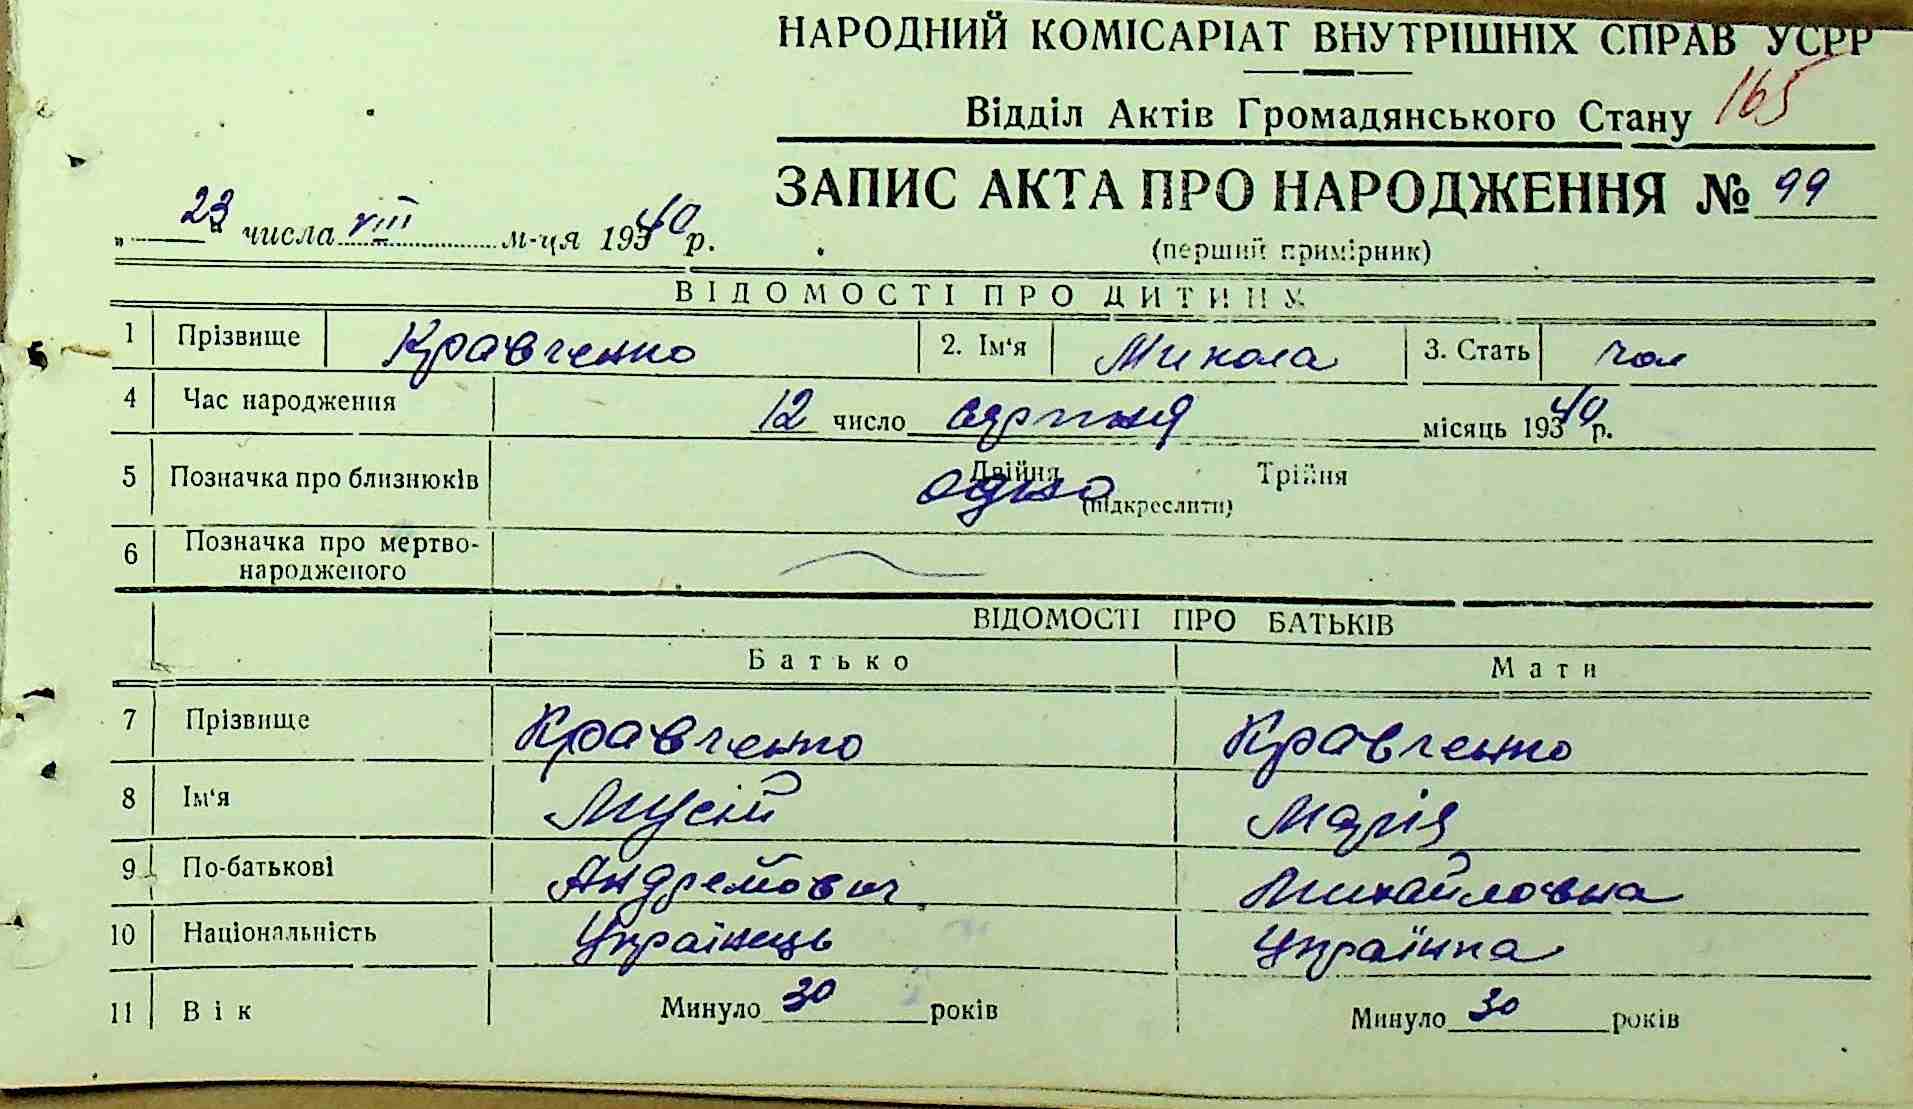 НАРОДНИЙ КОМІСАРІАТ ВНУТРІШНІХ СПРАВ УСРР
Відділ Актів Громадянського Стану 165
ЗАПИС АКТА ПРО НАРОДЖЕННЯ № 99
„23“ числа VIII м-ця 1940 р.
(перший примірник)
ВІДОМОСТІ ПРО ДИТИНУ
1 Прізвище Кравченко 2. Ім'я Микола 3. Стать чол
4 Час народження 12 число серпня місяць 1940 р.
5 Позначка про близнюків Двійня Трійня
одно (підкреслити)
6 Позначка про мертво-
народженого
ВІДОМОСТІ ПРО БАТЬКІВ
Батько Мати
7 Прізвище Кравченко Кравченко
8 Ім'я Мусій Марія
9 По-батькові Андрейович Михайловна
10 Національність Українець Українка
11 Вік Минуло 30 років Минуло 30 років